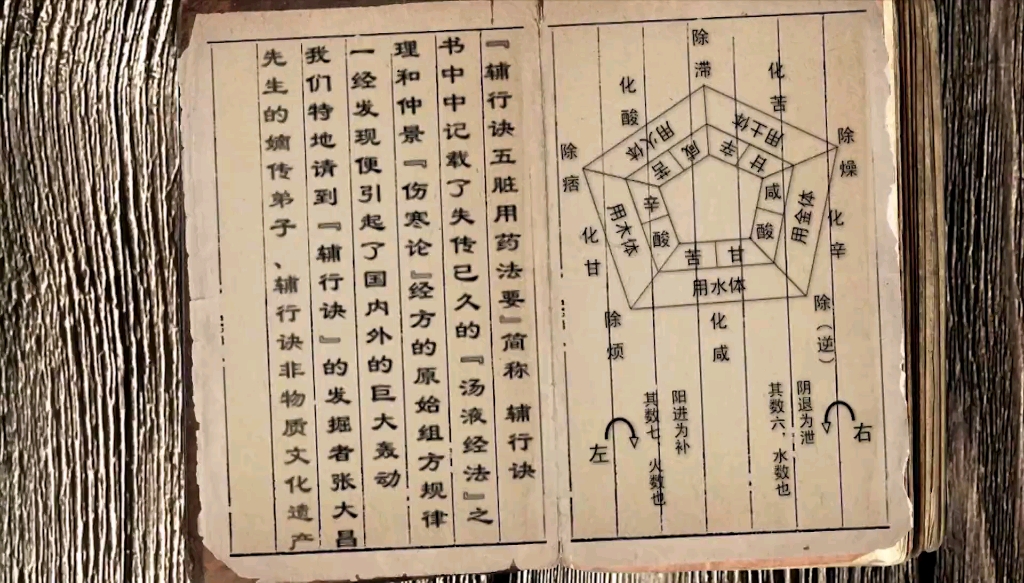 除滞
化酸
化苦
除痞
除燥
化甘
化辛
除烦
化咸
除(逆)
用火体
用土体
用金体
用水体
用木体
咸
辛
苦
甘
辛
咸
酸
酸
苦
甘
右
阴退为泄
其数六,水数也
阳进为补
其数七,火数也
左
『辅行诀五脏用药法要』简称 辅行诀
书中中记载了失传已久的『汤液经法』之
理和仲景『伤寒论』经方的原始组方规律
一经发现便引起了国内外的巨大轰动
我们特地请到『辅行诀』的发掘者张大昌
先生的嫡传弟子、辅行诀非物质文化遗产